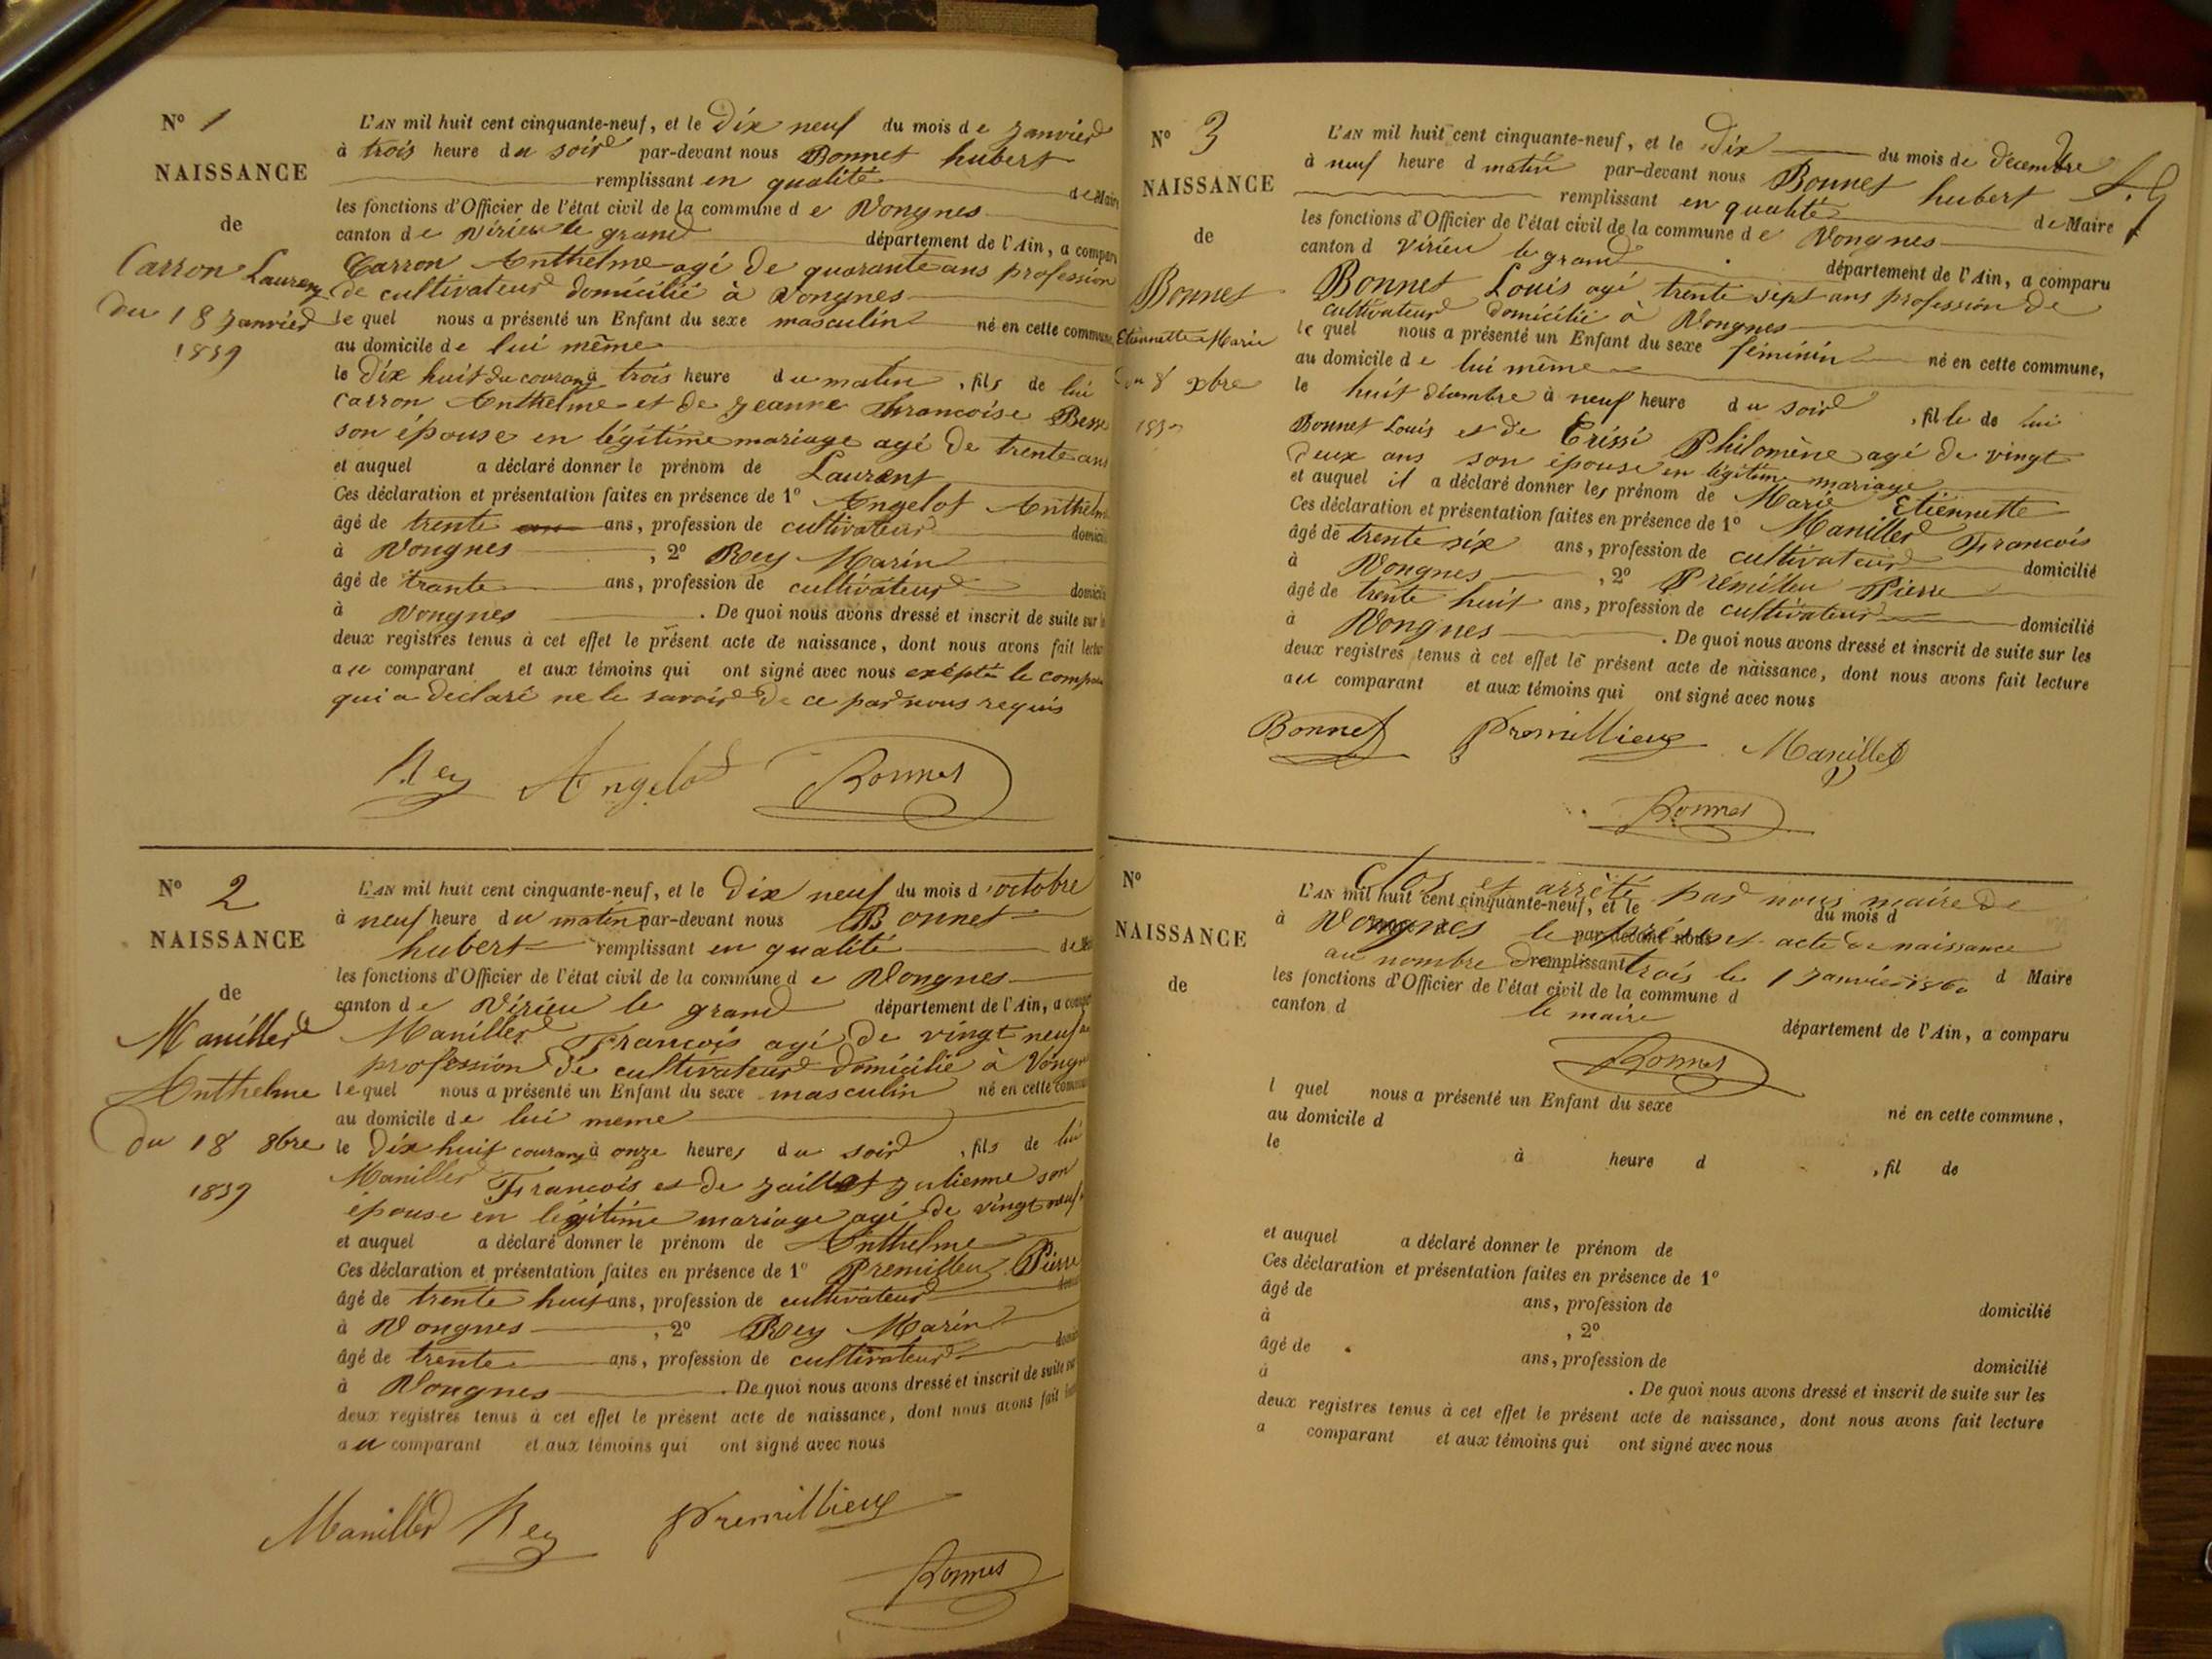 N° 1
NAISSANCE
de
Carron Laurent
du 18 Janvier
1859
L'AN mil huit cent cinquante-neuf, et le dix neuf du mois de Janvier
à trois heure du soir par-devant nous Bonnet hubert
remplissant en qualité de Maire
les fonctions d'Officier de l'état civil de la commune de Vongnes
canton de Virieu le grand département de l'Ain, a comparu
Carron Anthelme agé de quarante ans profession
de cultivateur domicilié à Vongnes
lequel nous a présenté un Enfant du sexe masculin né en cette commune,
au domicile de lui même
le dix huit du courant à trois heure du matin, fils de lui
Carron Anthelme et de Jeanne Francoise Besse
son épouse en légitime mariage agé de trente ans
et auquel a déclaré donner le prénom de Laurent
Ces déclaration et présentation faites en présence de 1° Angelot Anthelme
âgé de trente ans, profession de cultivateur domicilié
à Vongnes, 2° Rey Marin
âgé de trante ans, profession de cultivateur domicilié
à Vongnes. De quoi nous avons dressé et inscrit de suite sur les
deux registres tenus à cet effet le présent acte de naissance, dont nous avons fait lecture
au comparant et aux témoins qui ont signé avec nous exépté le comparant
qui a declaré ne le savoir de ce par nous requis
Rey Angelot Bonnet
N° 2
NAISSANCE
de
Maniller
Anthelme
du 18 8bre
1859
L'AN mil huit cent cinquante-neuf, et le dix neuf du mois d'octobre
à neuf heure du matin par-devant nous Bonnet
hubert remplissant en qualité de Maire
les fonctions d'Officier de l'état civil de la commune de Vongnes
canton de Virieu le grand département de l'Ain, a comparu
Maniller Francois agé de vingt neuf ans
profession de cultivateur domicilié à Vongnes
lequel nous a présenté un Enfant du sexe masculin né en cette commune
au domicile de lui meme
le dix huit courant à onze heures du soir, fils de lui
Maniller Francois et de Jaillet Julienne son
épouse en légitime mariage agé de vingt neuf
et auquel a déclaré donner le prénom de Anthelme
Ces déclaration et présentation faites en présence de 1° Premilleu Pierre
âgé de trente huit ans, profession de cultivateur domicilié
à Vongnes, 2° Rey Marin
âgé de trente ans, profession de cultivateur domicilié
à Vongnes. De quoi nous avons dressé et inscrit de suite sur
deux registres tenus à cet effet le présent acte de naissance, dont nous avons fait lecture
au comparant et aux témoins qui ont signé avec nous
Maniller Rey Premillieux
Bonnet
N° 3
NAISSANCE
de
Bonnet
Etiennette Marie
du 8 xbre
L'AN mil huit cent cinquante-neuf, et le dix du mois de décembre
à neuf heure d matin par-devant nous Bonnet hubert
remplissant en qualité de Maire
les fonctions d'Officier de l'état civil de la commune de Vongnes
canton d virieu le grand département de l'Ain, a comparu
Bonnet Louis agé trente sept ans profession de
cultivateur domicilié à Vongnes
lequel nous a présenté un Enfant du sexe féminin né en cette commune,
au domicile de lui même
le huit décembre à neuf heure du soir, fille de lui
Bonnet Louis et de Crissi Philomène agé de vingt
deux ans son épouse en légitime mariage
et auquel il a déclaré donner les prénom de Marie Etiennette
Ces déclaration et présentation faites en présence de 1° Maniller Francois
âgé de trente six ans, profession de cultivateur domicilié
à Vongnes, 2° Premilleu Pierre
âgé de trente huit ans, profession de cultivateur domicilié
à Vongnes. De quoi nous avons dressé et inscrit de suite sur les
deux registres tenus à cet effet le présent acte de naissance, dont nous avons fait lecture
au comparant et aux témoins qui ont signé avec nous
Bonnet Premillieux Maniller
Bonnet
N°
NAISSANCE
de
Clos et arrêté par nous maire de
L'AN mil huit cent cinquante-neuf, et le du mois d
Vongnes le présent acte de naissance
à par-devant nous
au nombre de trois le 1 Janvier 1860
remplissant d Maire
les fonctions d'Officier de l'état civil de la commune d
le maire
canton d département de l'Ain, a comparu
Bonnet
l quel nous a présenté un Enfant du sexe né en cette commune,
au domicile d
le à heure d, fil de
et auquel a déclaré donner le prénom de
Ces déclaration et présentation faites en présence de 1°
âgé de ans, profession de domicilié
à, 2°
âgé de ans, profession de domicilié
à. De quoi nous avons dressé et inscrit de suite sur les
deux registres tenus à cet effet le présent acte de naissance, dont nous avons fait lecture
a comparant et aux témoins qui ont signé avec nous